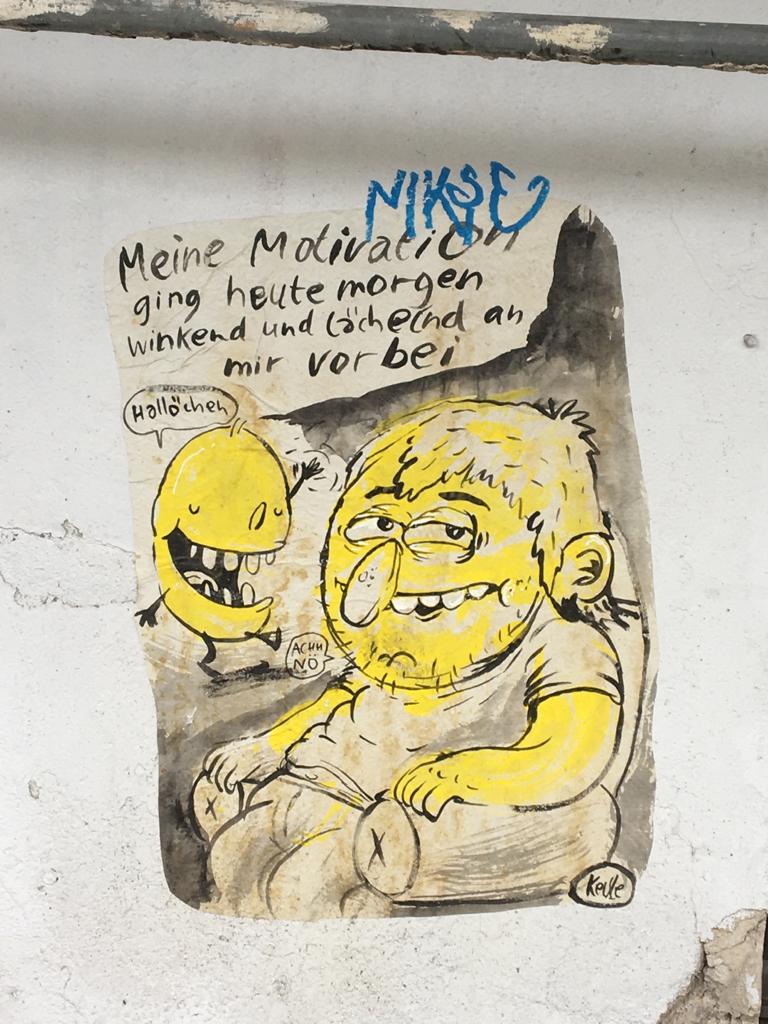 NIKSE
Meine Motivation
ging heute morgen
winkend und lächelnd an
mir vorbei
Hallöchen
ACHH
NÖ
X
X
Keule